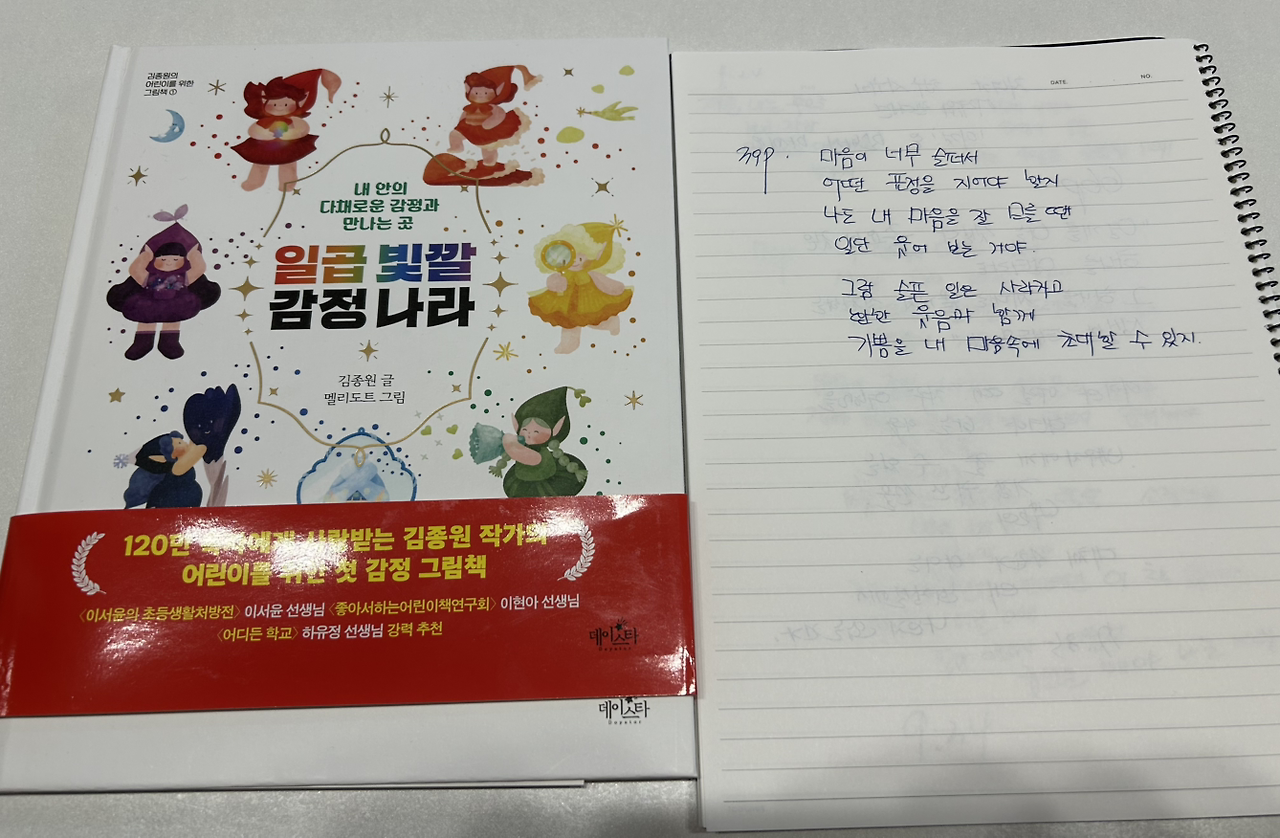 김종원의
어린이를 위한
그림책 ①
내 안의
다채로운 감정과
만나는 곳
일곱 빛깔
감정 나라
김종원 글
멜리도트 그림
120만 사랑받는 김종원 작가의
어린이를 위한 첫 감정 그림책
〈이서윤의 초등생활처방전〉 이서윤 선생님 〈좋아서하는어린이책연구회〉 이현아 선생님
〈어디든 학교〉 하유정 선생님 강력 추천
데이스타
Daystar
데이스타
Daystar
DATE.
NO.
39p. 마음이 너무 슬퍼서
어떤 표정을 지어야 할지
나도 내 마음을 잘 모를 땐
일단 웃어 보는 거야.
그럼 슬픈 일은 사라지고
환한 웃음과 함께
기쁨을 내 마음속에 초대할 수 있지.